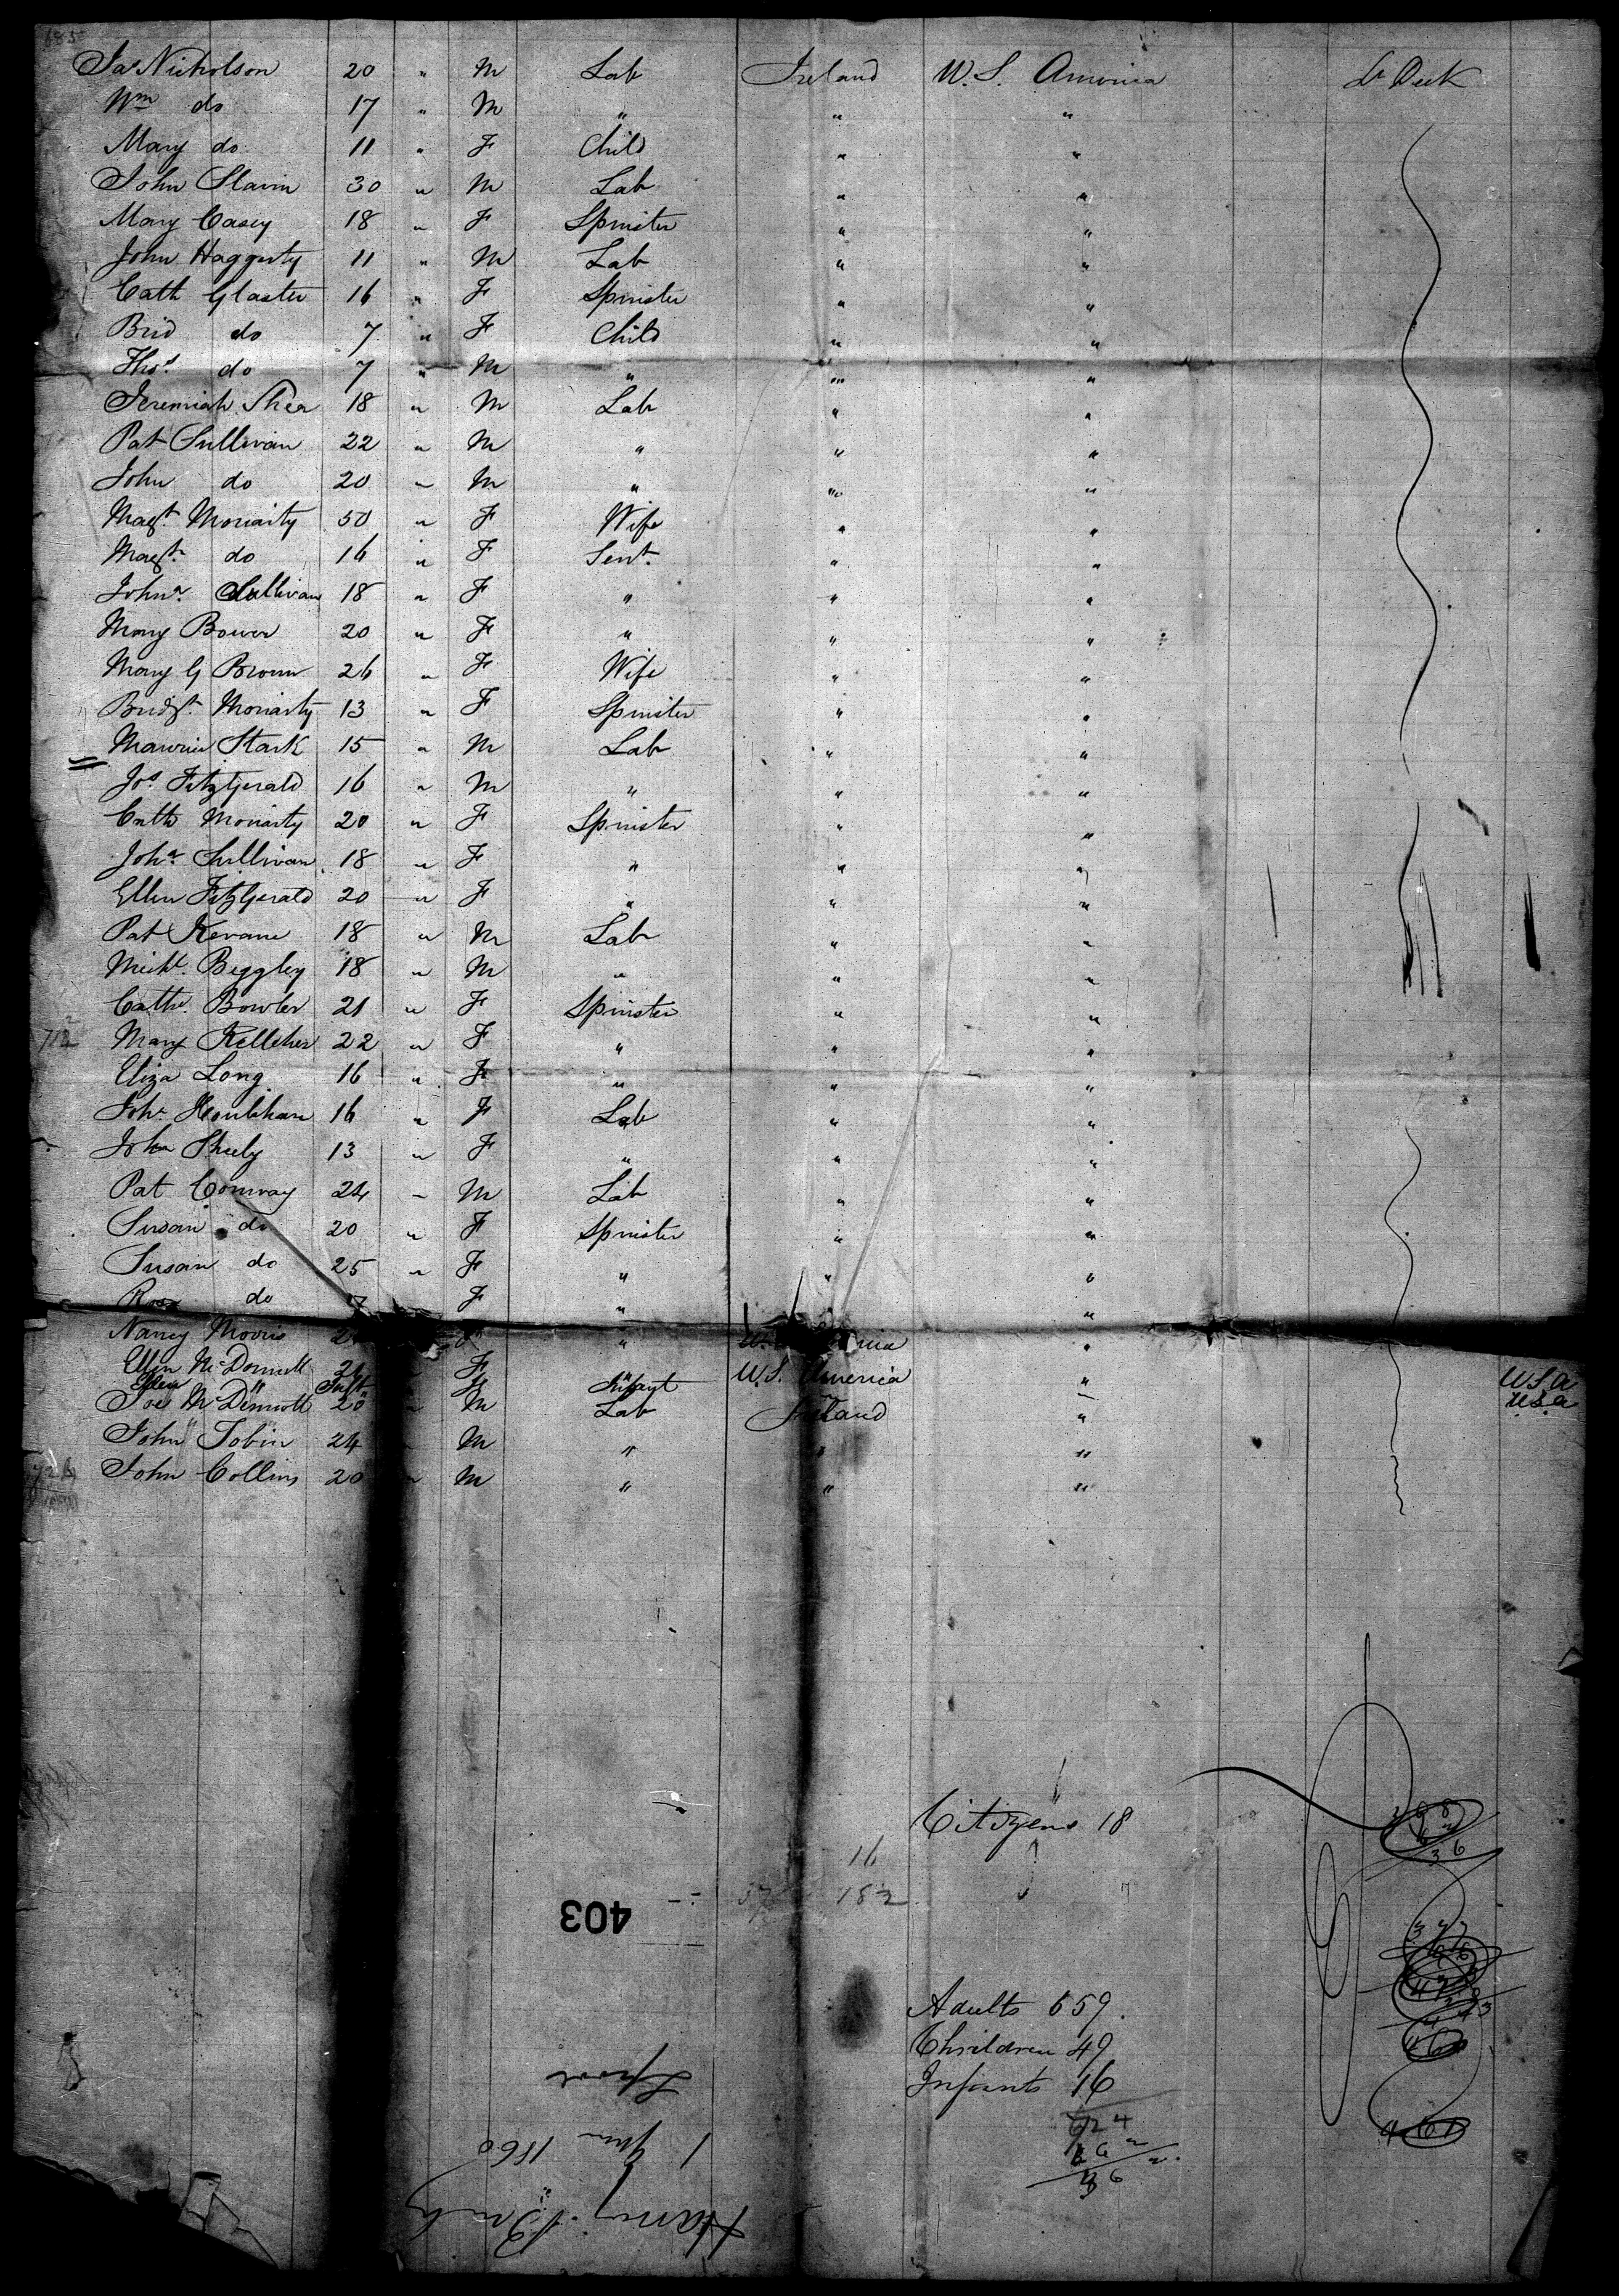 685
Jas Nicholson 20 " M Lab Ireland U.S. America Lr Deck
Wm do 17 " M " " "
Mary do 11 " F Child " "
John Slavin 30 " M Lab " "
Mary Casey 18 " F Spinster " "
John Haggerty 11 " M Lab " "
Cath Glaster 16 " F Spinster " "
Brid do 7 " F Child " "
Thos do 7 " M " " "
Jeremiah Shea 18 " M Lab " "
Pat Sullivan 22 " M " " "
John do 20 " M " " "
Magt. Moriarty 50 " F Wife " "
Magt. do 16 " F Sevt. " "
Johna. Sullivan 18 " F " " "
Mary Bower 20 " F " " "
Mary G Brown 26 " F Wife " "
Bridgt. Moriarty 13 " F Spinster " "
Maurice Stark 15 " M Lab " "
Jos. Fitzgerald 16 " M " " "
Cath Moriarty 20 " F Spinster " "
Joha. Sullivan 18 " F " " "
Ellen FitzGerald 20 " F " " "
Pat Kevane 18 " M Lab " "
Michl. Beggley 18 " M " " "
Cathe. Bowler 21 " F Spinster " "
712 Mary Kelleher 22 " F " " "
Eliza Long 16 " F " " "
Joh. Houlihan 16 " F Lab " "
John Sheehy 13 " F " " "
Pat Conway 24 " M Lab " "
Susan do 20 " F Spinster " "
Susan do 25 " F " " "
Rosa do F " "
Nancy Morris " "
Ellen McDermott 24 F " U.S. America " USA
Ellen " Inft F Infant " USA
Joe McDermott 20 M Lab Ireland "
John Tobin 24 M " " "
John Collins 20 " M " " "
Citizens 18
16
182
403
Adults 659.
Children 49
Infants 16
724
36
Lpool
1 Jun 1860
Harvey Birch